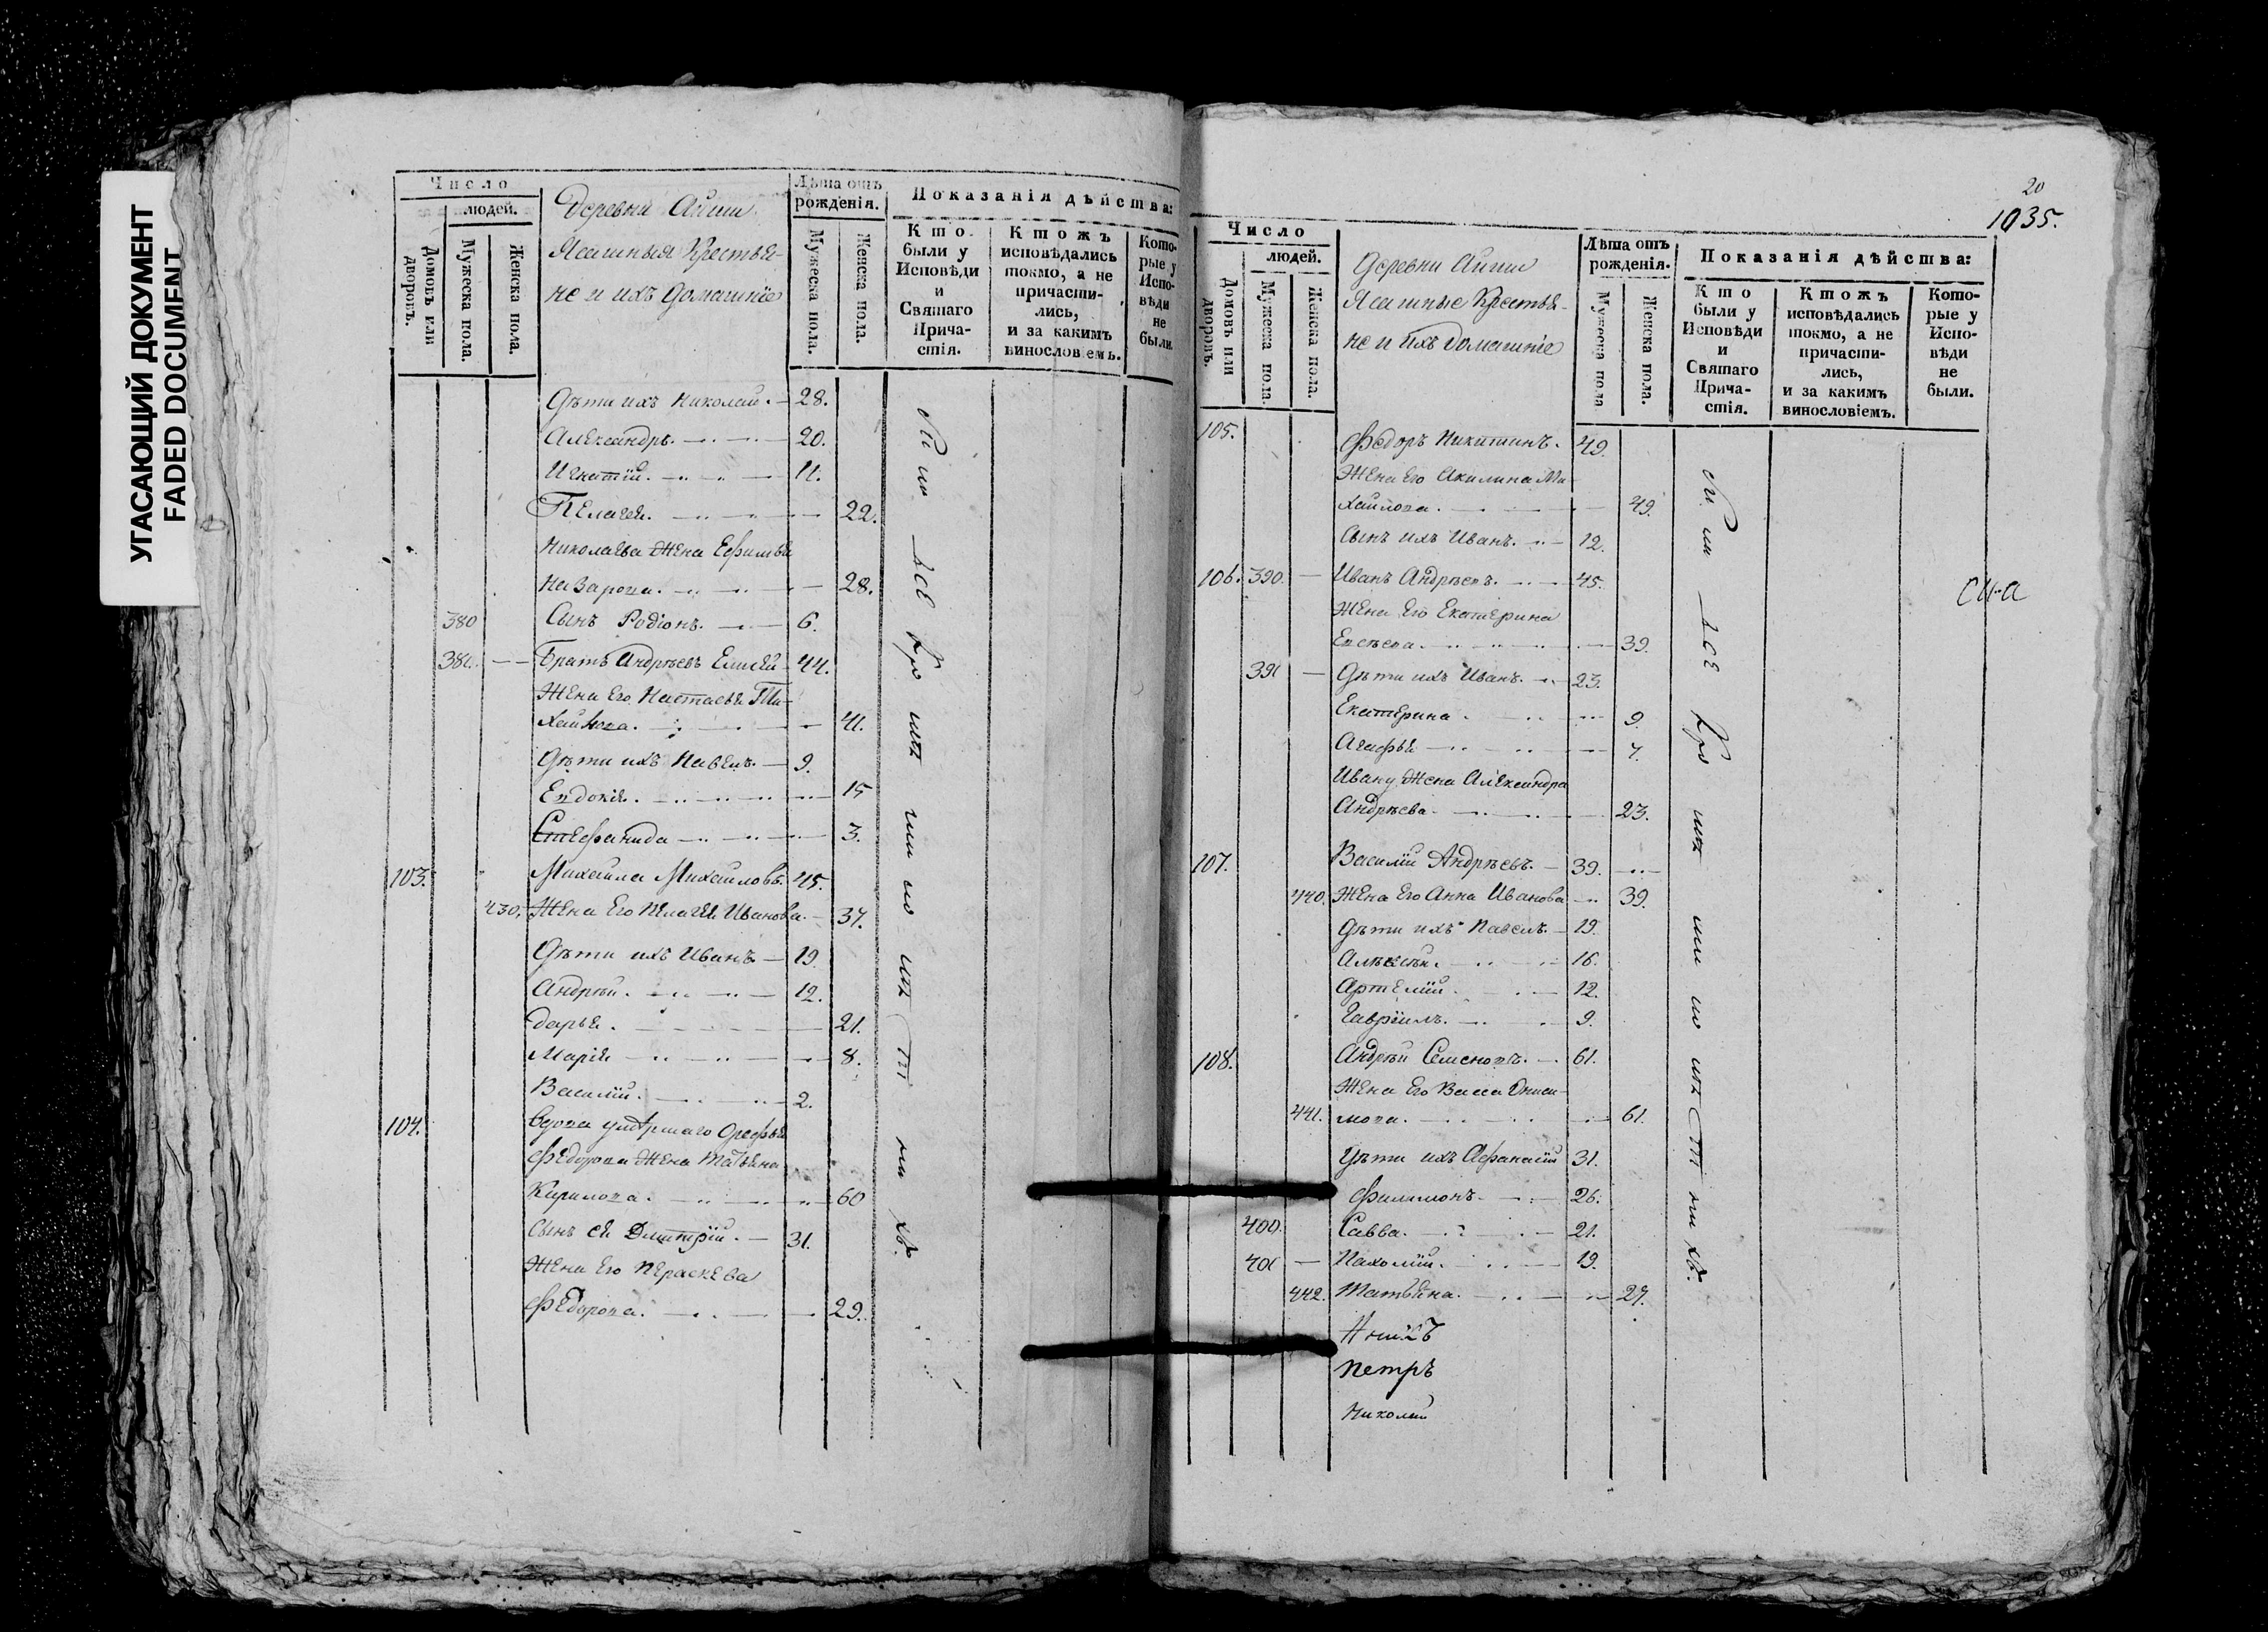 УГАСАЮЩИЙ ДОКУМЕНТ
FADED DOCUMENT
Число
людей.
Домовъ или дворовъ.
Мужеска пола.
Женска пола.
Деревни Айши
Ясашныя Крестья-
не и ихъ домашніе
Лѣта отъ рожденія.
Мужеска пола.
Женска пола.
Показанія дѣйства:
Кто были у Исповѣди и Святаго Прича-стія.
Ктожъ исповѣдались токмо, а не причасти-лись, и за какимъ винословіемъ.
Кото-рые у Испо-вѣди не были.
Дѣти ихъ Николай. 28.
Александръ. 20.
Игнатій. 11.
Пелагея. 22.
Николаева жена Ефимья
Назарова. 28.
380 Сынъ Родіонъ. 6.
381. Братъ Андрѣевъ Елисей 44.
Жена Его Настасья Ми-
хайлова. 41.
Дѣти ихъ Павелъ. 9.
Евдокія. 15
Стефанида 3.
103. Михайла Михайловъ. 45.
430. Жена Его Пелагея Иванова. 37.
Дѣти ихъ Иванъ 19
Андрѣй. 12.
Дарья. 21.
Марія 8.
Василій. 2.
104. Вдова умершаго
Федорова жена Татьяна
Кирилова. 60
Сынъ ея Дмитрій. 31.
Жена Его Параскева
Федорова. 29.
20
1035.
Число
людей.
Домовъ или дворовъ.
Мужеска пола.
Женска пола.
Деревни Айши
Ясашные Крестья-
не и ихъ домашніе
Лѣта отъ рожденія.
Мужеска пола
Женска пола.
Показанія дѣйства:
Кто были у Исповѣди и Святаго Прича-стія.
Ктожъ исповѣдались токмо, а не причасти-лись, и за какимъ винословіемъ.
Кото-рые у Испо-вѣди не были.
105. Федоръ Никитинъ. 49.
Жена Его Акилина Ми-
хайлова. 49.
Сынъ ихъ Иванъ. 12.
106. 390. Иванъ Андрѣевъ. 45.
Жена Его Екатерина
Евсѣева. 39.
391 Дѣти ихъ Иванъ. 23.
Екатерина. 9.
Агафья 7.
Ивану жена Александра
Андрѣева. 23.
107. Василій Андрѣевъ. 39.
440. Жена Его Анна Иванова 39.
Дѣти ихъ Павелъ. 19.
Алексѣй. 16.
Артемій. 12.
Гавріилъ. 9.
108. Андрѣй Семеновъ. 61.
Жена Его Васса Ониси-
441. мова. 61.
Дѣти ихъ Афанасій 31.
Филимонъ. 26.
400. Савва. 21.
401 Пахомій. 19.
442. Татьяна. 27.
Петръ
Николай